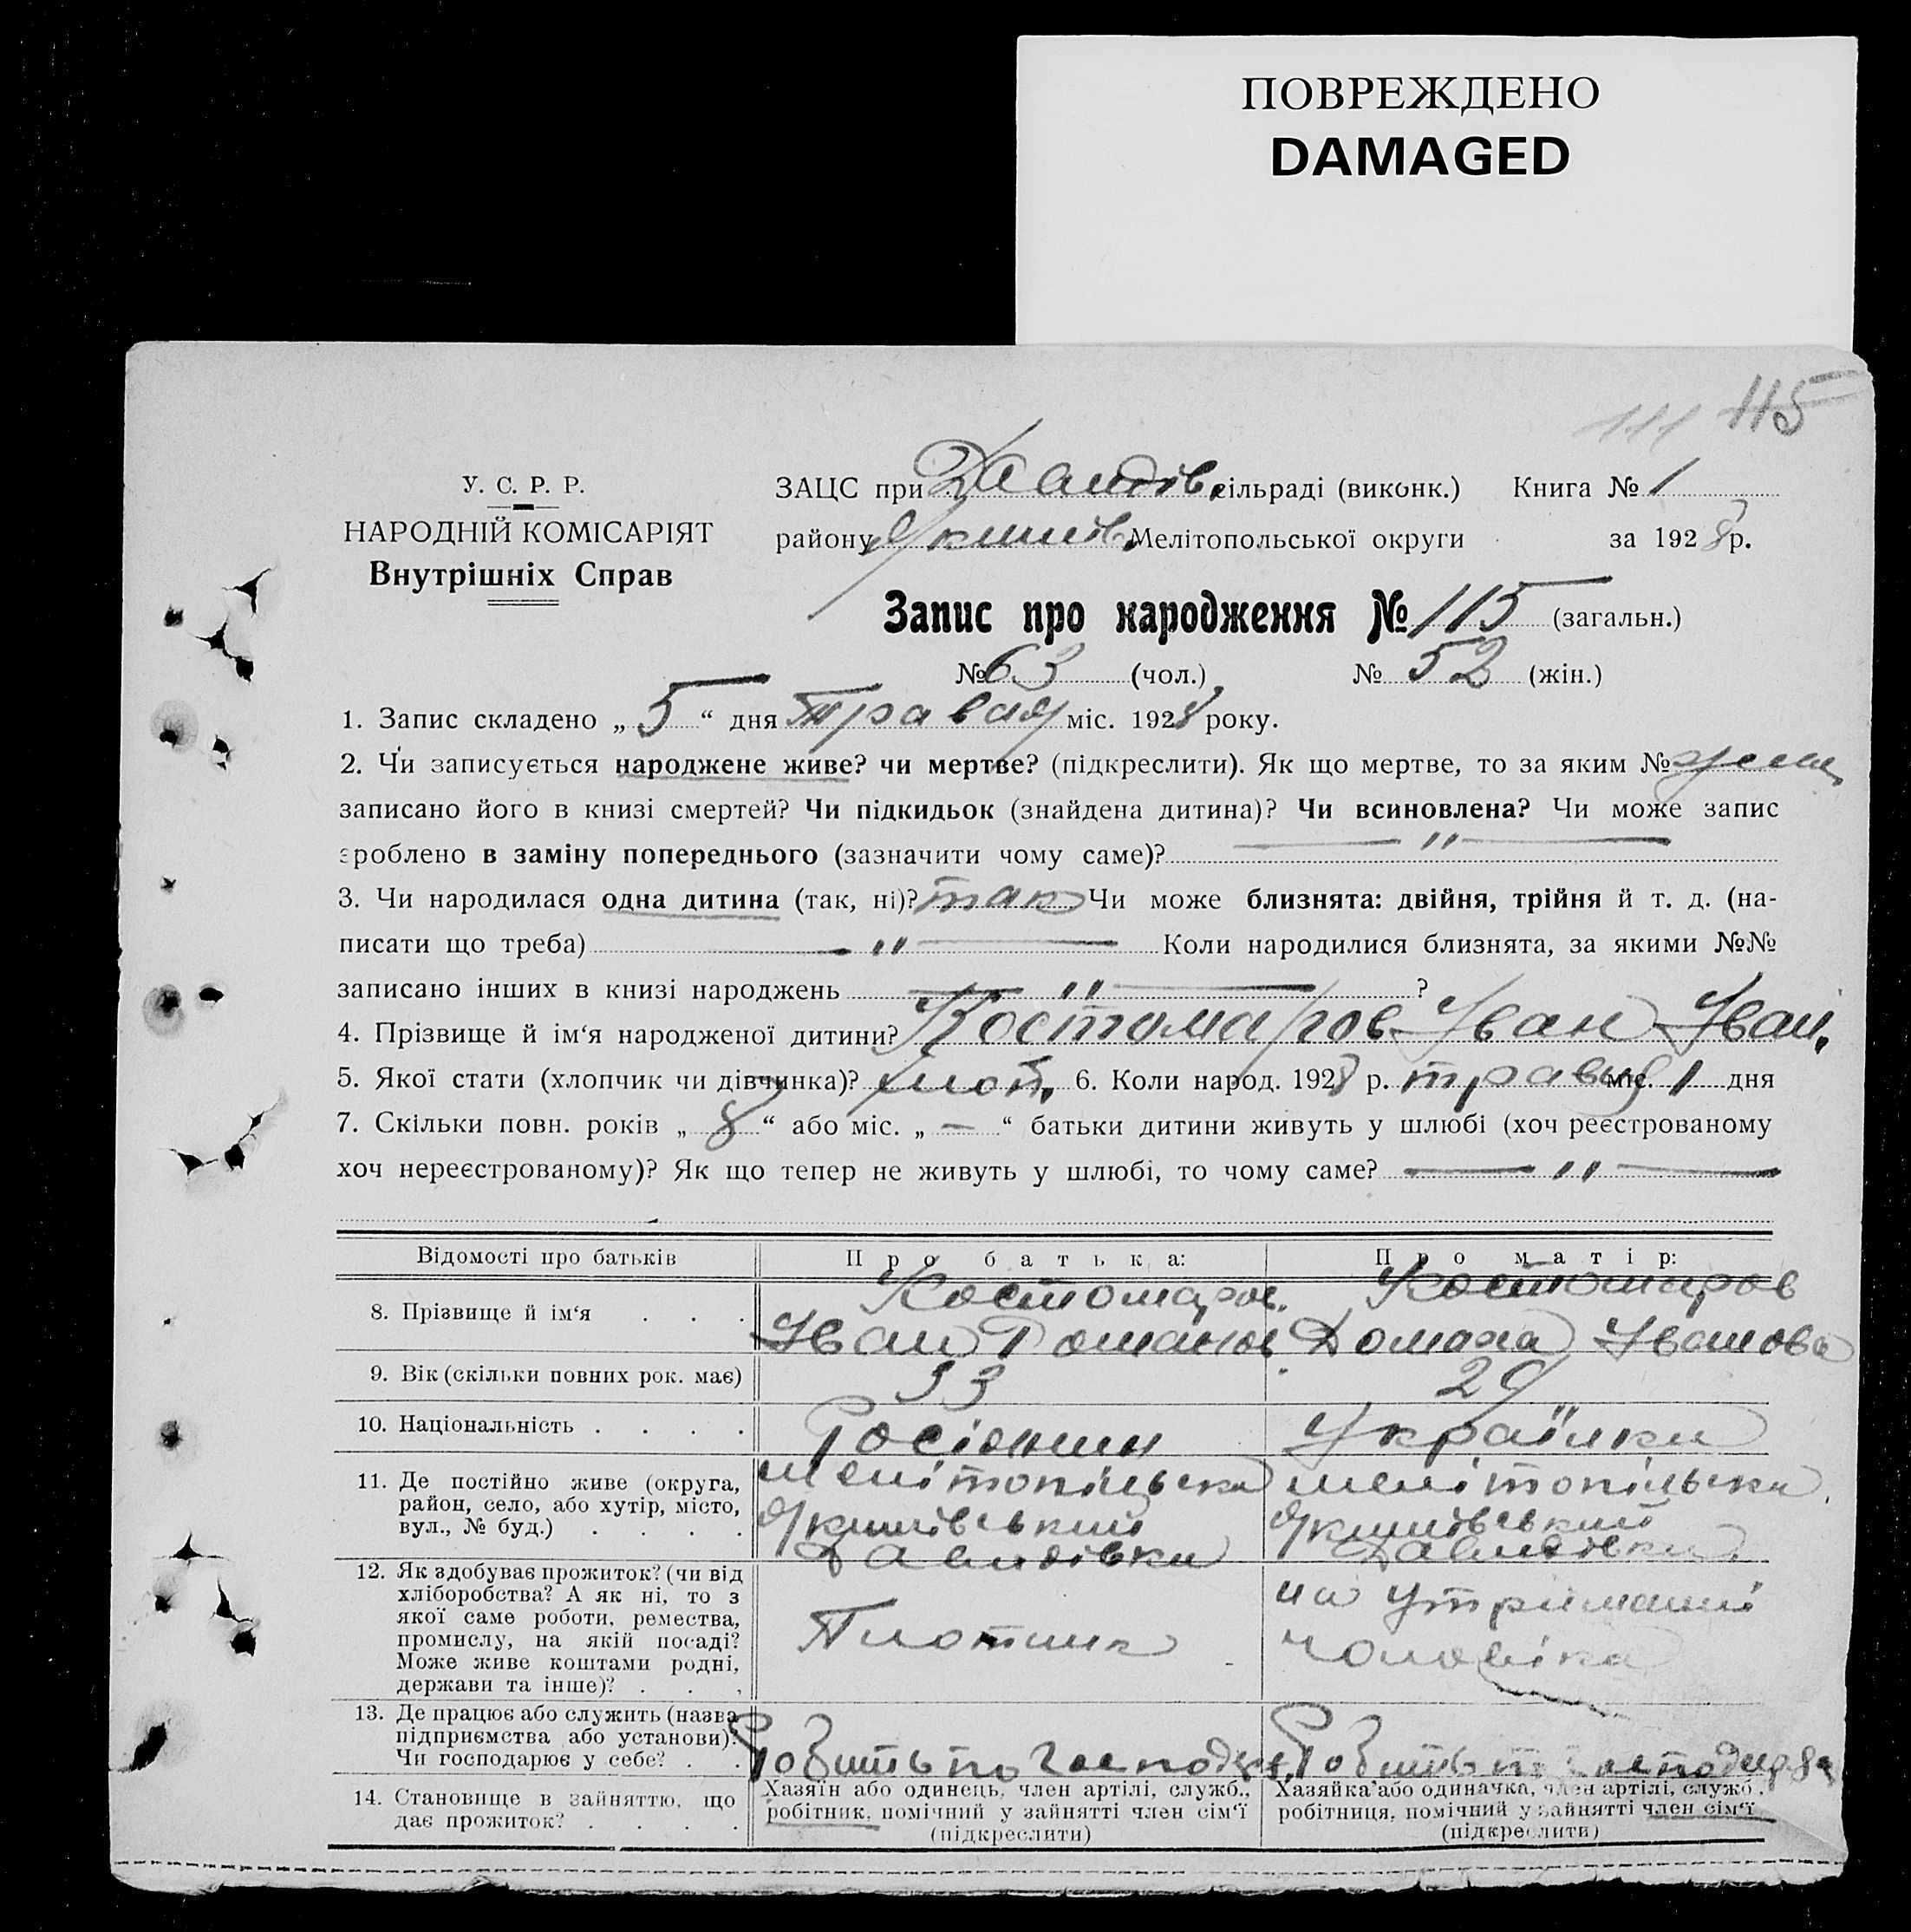 ПОВРЕЖДЕНО
DAMAGED
111 115
У. С. Р. Р.
НАРОДНІЙ КОМІСАРІЯТ
Внутрішніх Справ
ЗАЦС при Давидів. сільраді (виконк.) Книга № 1
району Якимів. Мелітопольської округи за 1928 р.
Запис про народження № 115 (загальн.)
№ 63 (чол.) № 52 (жін.)
1. Запис складено „ 5 “ дня Травня міс. 1928 року.
2. Чи записується народжене живе? чи мертве? (підкреслити). Як що мертве, то за яким №
записано його в книзі смертей? Чи підкидьок (знайдена дитина)? Чи всиновлена? Чи може запис
зроблено в заміну попереднього (зазначити чому саме)? — " —
3. Чи народилася одна дитина (так, ні)? так Чи може близнята: двійня, трійня й т. д. (на-
писати що треба) — " — Коли народилися близнята, за якими №№
записано інших в книзі народжень — " — ?
4. Прізвище й ім‘я народженої дитини? Костомаров Іван Іван.
5. Якої стати (хлопчик чи дівчинка)? 6. Коли народ. 1928 р. травня міс. 1 дня
7. Скільки повн. років „ 8 “ або міс. „ — “ батьки дитини живуть у шлюбі (хоч реєстрованому
хоч нереєстрованому)? Як що тепер не живуть у шлюбі, то чому саме? — " —
Відомості про батьків Про батька: Про матір:
8. Прізвище й ім‘я . . . Костомаров. Іван Романов Костомаров Домаха Іванова
9. Вік (скільки повних рок. має) 33 29
10. Національність . . . . Росіянин Українка
11. Де постійно живе (округа,
район, село, або хутір, місто,
вул., № буд.) . . . .
Мелітопільська Якимівський Давидівка
Мелітопільська Якимівський Давидівка
12. Як здобуває прожиток? (чи від
хліборобства? А як ні, то з
якої саме роботи, ремества,
промислу, на якій посаді?
Може живе коштами родні,
держави та інше)? . . .
Плотник
на утриманні чоловіка
13. Де працює або служить (назва
підприємства або установи)?
Чи господарює у себе? . .
Робить по господар.
Робить по господарству
14. Становище в зайняттю, що
дає прожиток? . . . .
Хазяїн або одинець, член артілі, служб.,
робітник, помічний у зайнятті член сім‘ї
(підкреслити)
Хазяйка або одиначка, член артілі, служб.,
робітниця, помічний у зайнятті член сім‘ї
(підкреслити)